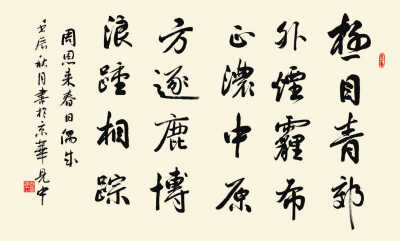 極目青郊
外煙霾布
正濃中原
方逐鹿博
浪踵相踪
周恩来春日偶成
壬辰秋月書於京華